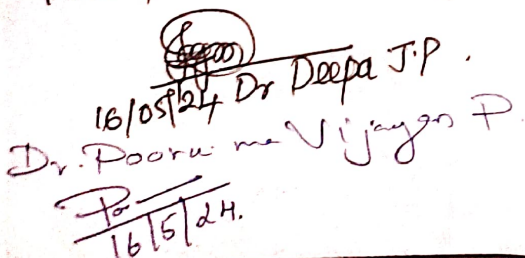 16/05/24 Dr Deepa J.P.
Dr. Pooru me Vijayan P.
16/5/24.